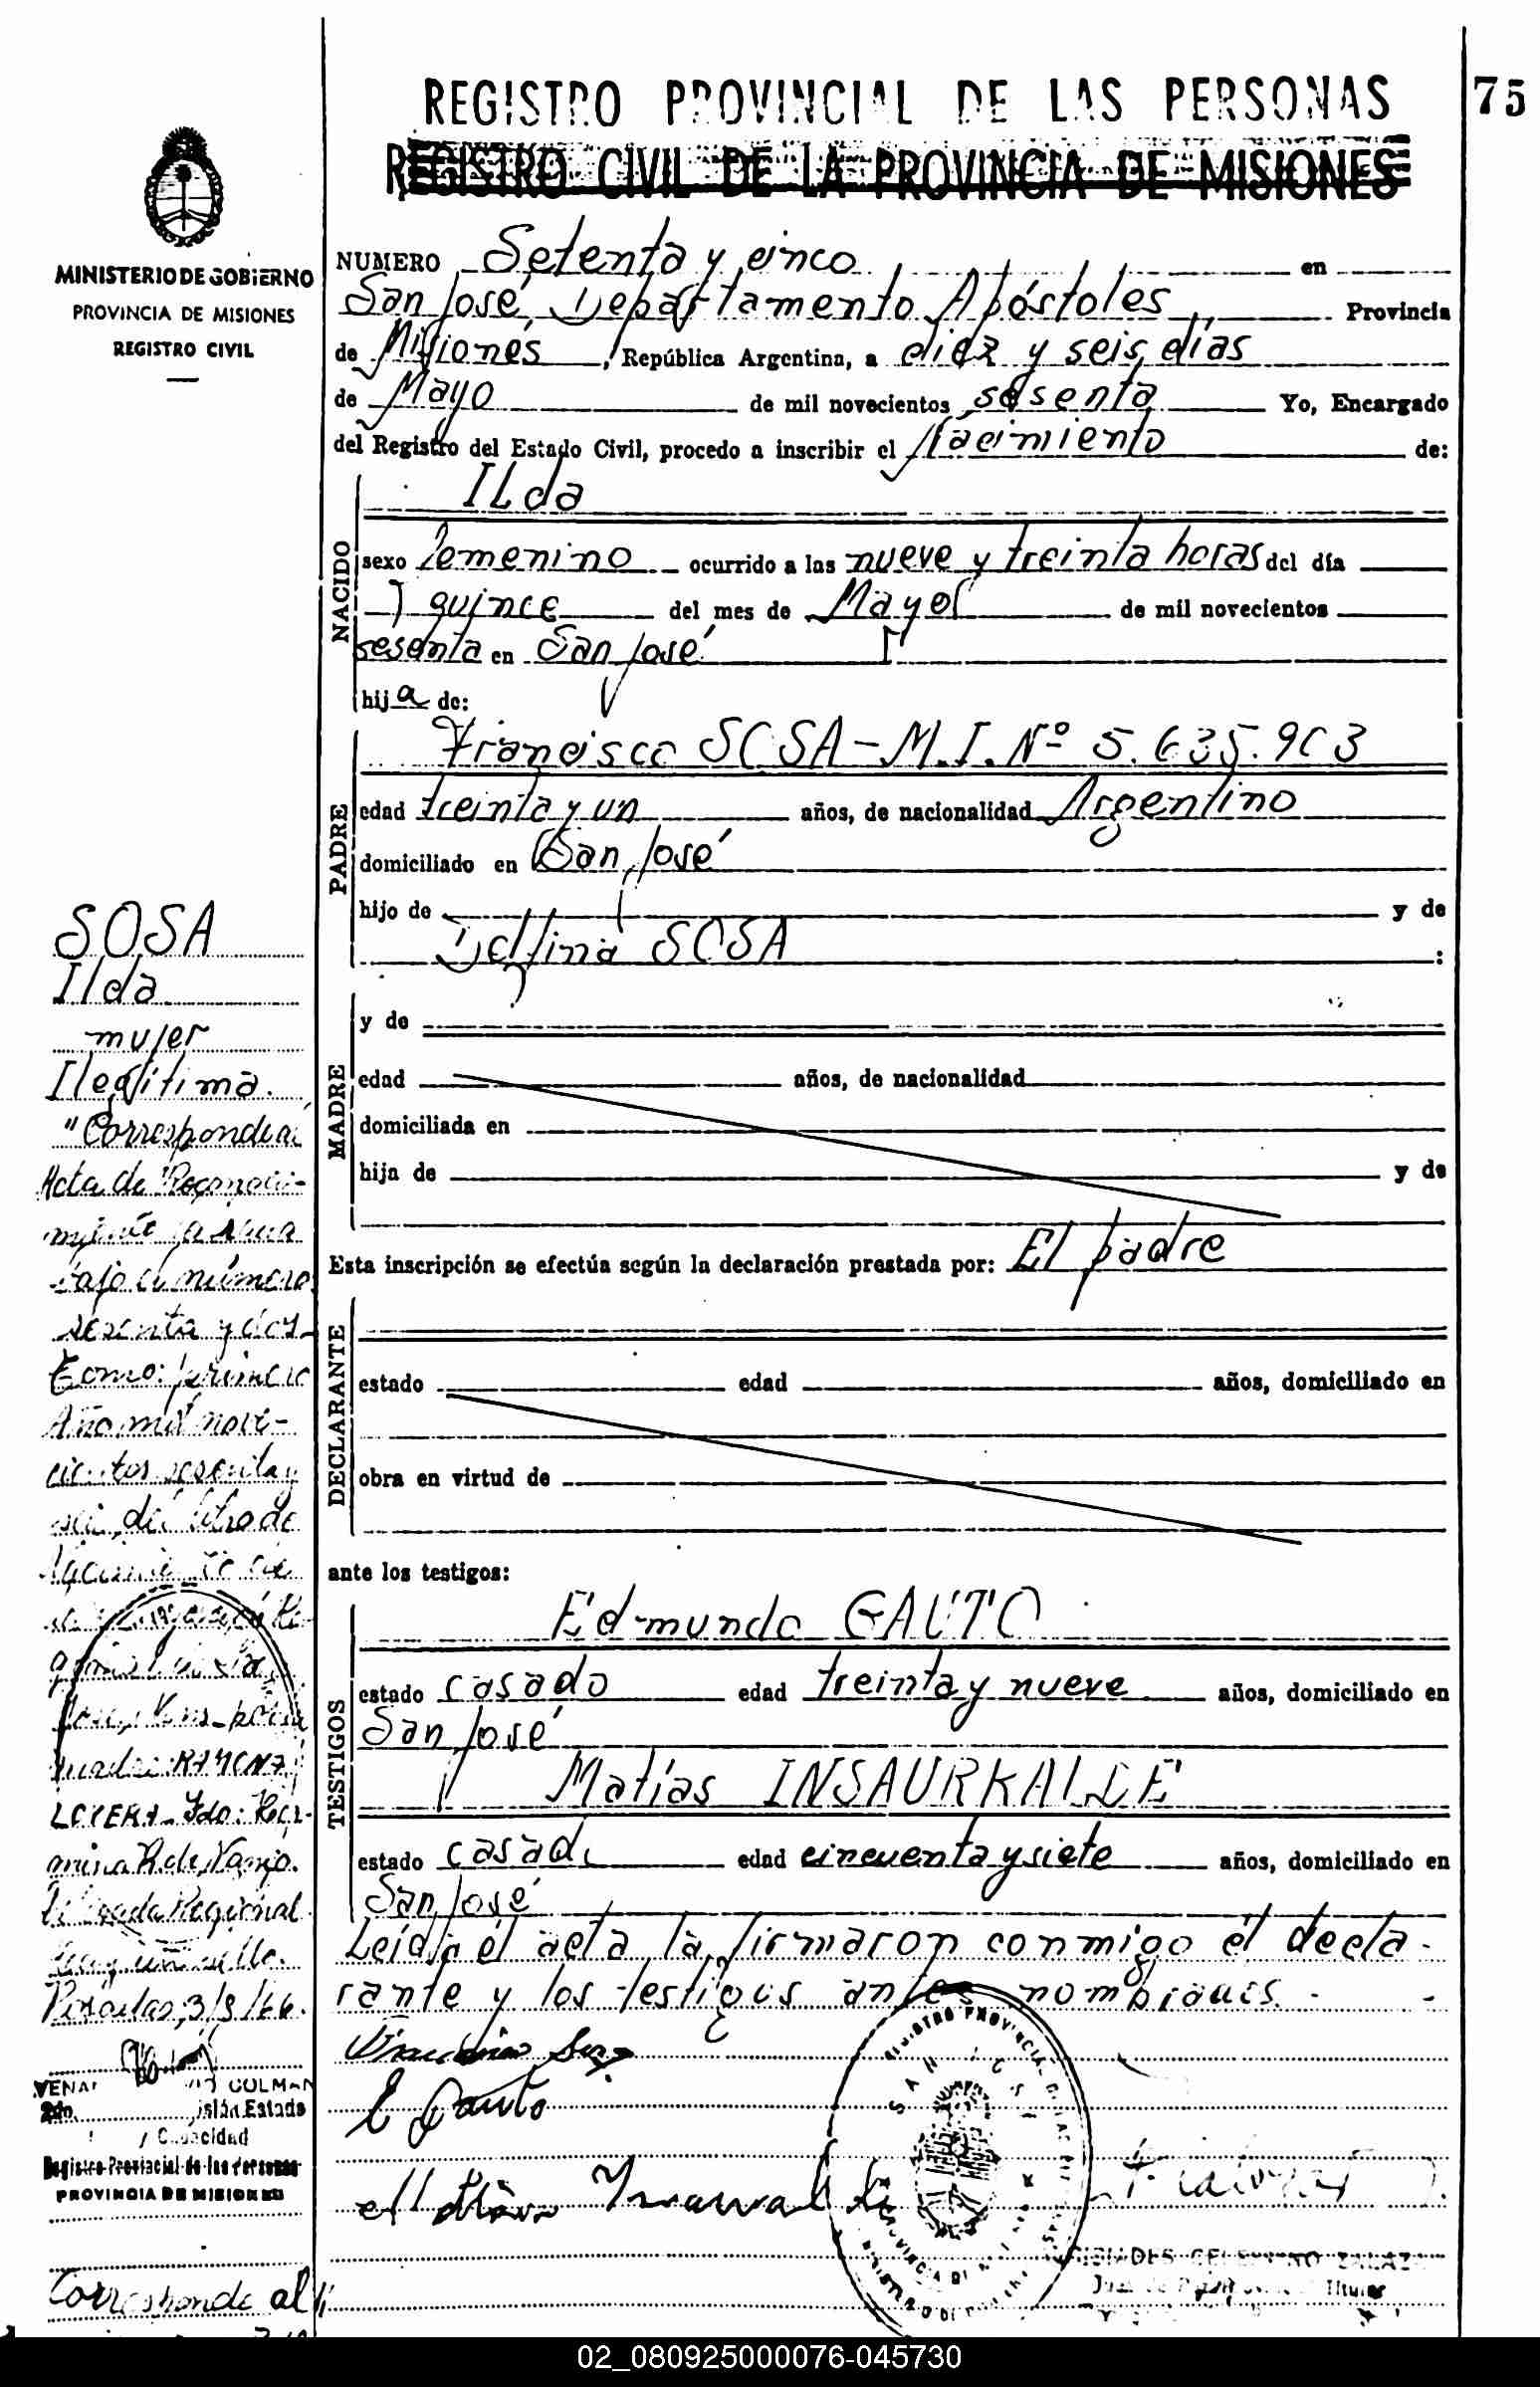 75
REGISTRO PROVINCIAL DE LAS PERSONAS
REGISTRO CIVIL DE LA PROVINCIA DE MISIONES
MINISTERIO DE GOBIERNO
PROVINCIA DE MISIONES
REGISTRO CIVIL
NUMERO Setenta y cinco en
San José Departamento Apóstoles Provincia
de Misiones, República Argentina, a diez y seis días
de Mayo de mil novecientos sesenta Yo, Encargado
del Registro del Estado Civil, procedo a inscribir el Nacimiento de:
NACIDO
ILda
sexo femenino ocurrido a las nueve y treinta horas del día
quince del mes de Mayo de mil novecientos
sesenta en San José
hija de:
PADRE
Francisco SOSA - M.I. Nº 5.635.903
edad treinta y un años, de nacionalidad Argentino
domiciliado en San José
hijo de y de
Delfina SOSA :
MADRE
y de
edad años, de nacionalidad
domiciliada en
hija de y de
Esta inscripción se efectúa según la declaración prestada por: El padre
DECLARANTE
estado edad años, domiciliado en
obra en virtud de
ante los testigos:
TESTIGOS
Edmundo GAUTO
estado casado edad treinta y nueve años, domiciliado en
San José
Matías INSAURRALDE
estado casado edad cincuenta y siete años, domiciliado en
San José
Leída el acta la firmaron conmigo el decla-
rante y los testigos antes nombrados.
E Gauto
SOSA
Ilda
mujer
Ilegítima.
"Corresponde al
Acta de Reconoci-
miento
bajo el número
sesenta y dos
Tomo: primero
Año mil nove-
cientos sesenta y
seis, del libro de
madre: RAMONA
LOVERA
Delegada Regional
Posadas, 3/3/66.
COLMAN
2do.
Estado
y Capacidad
Registro Provincial de las Personas
PROVINCIA DE MISIONES
Corresponde al
REGISTRO PROVINCIAL DE LAS PERSONAS
SAN JOSE
Titular
02_080925000076-045730